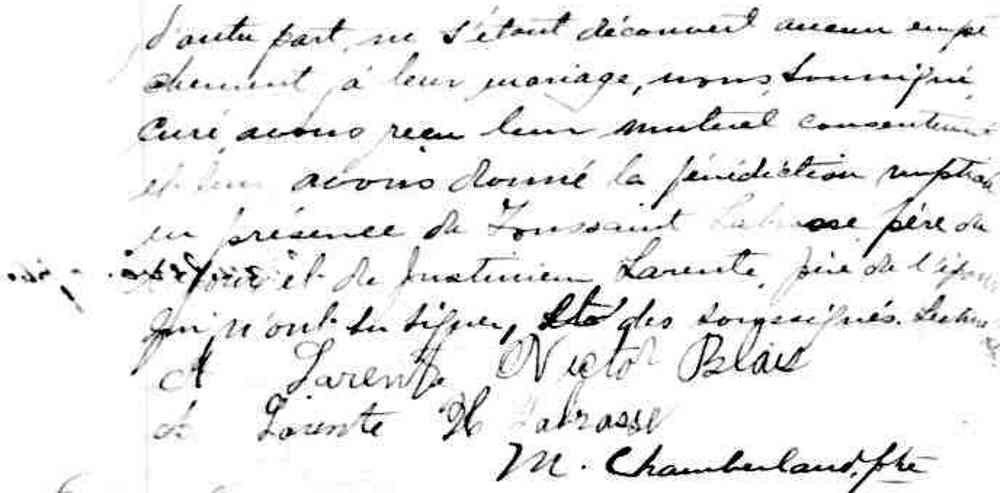 d'autre part, ne s'étant découvert aucun empê
chement à leur mariage, nous, soussigné,
Curé, avons reçu leur mutuel consentement
et leur avons donné la bénédiction nuptiale
en présence de Toussaint Labrosse père de
l'époux et de Justinien Larente, père de l'épouse
qui n'ont su signer, des soussignés. Lecture
A Larente Victor Blais
A Larente H Labrosse
M. Chamberland, ptre